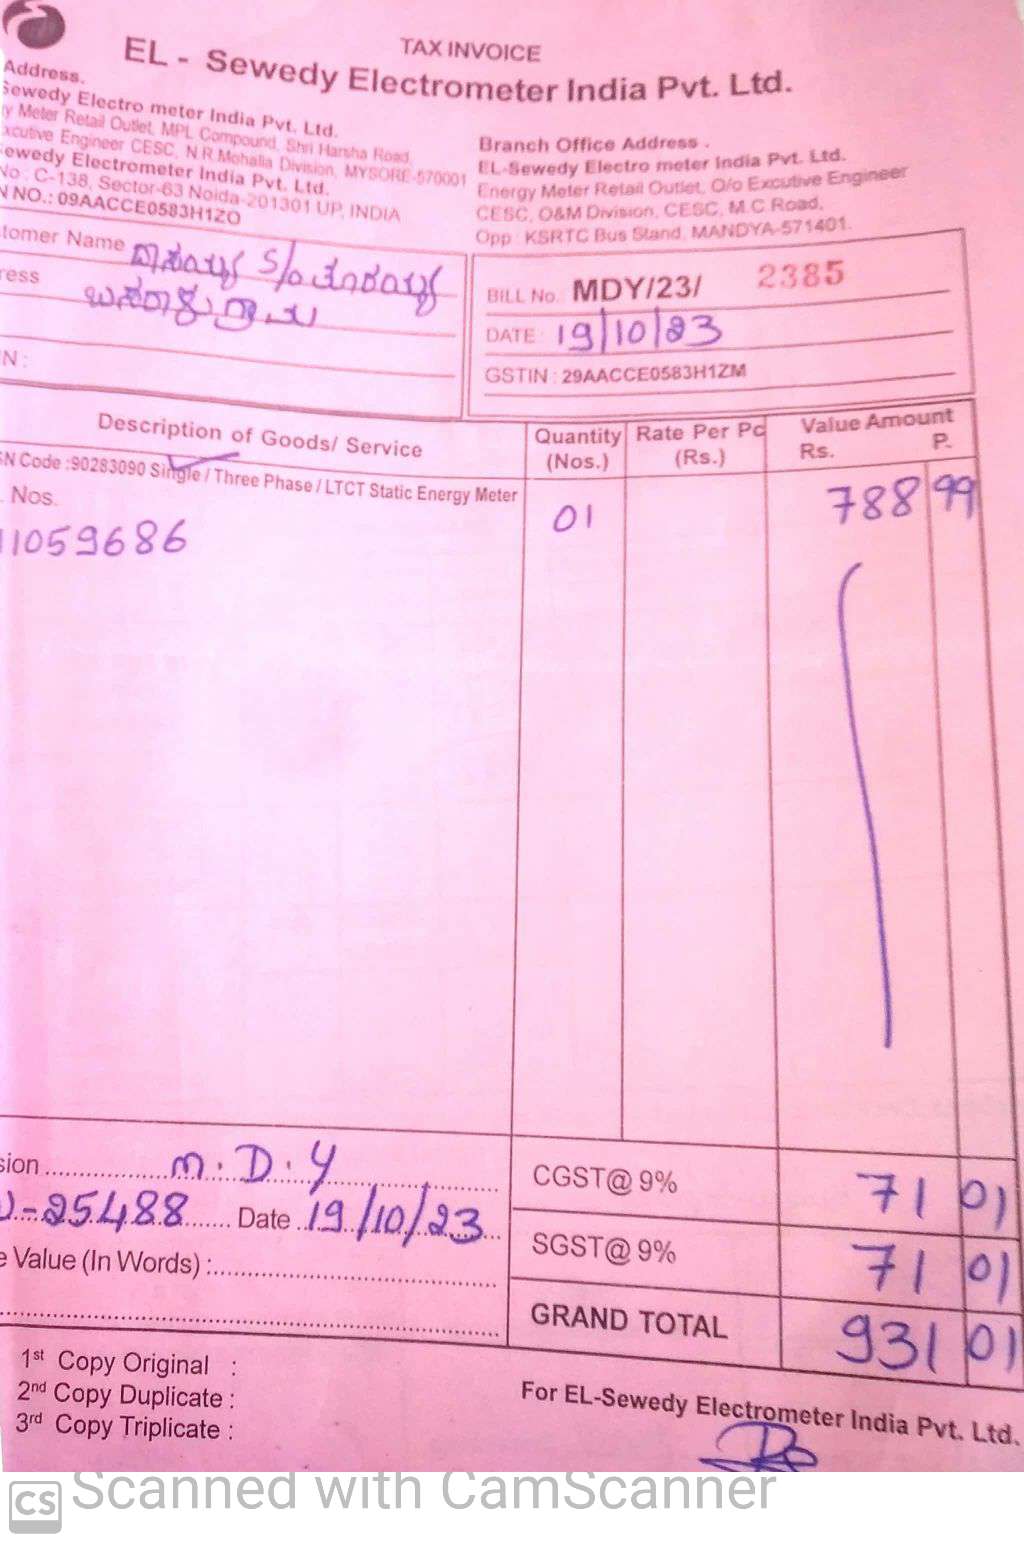 TAX INVOICE
EL - Sewedy Electrometer India Pvt. Ltd.
Address.
Sewedy Electro meter India Pvt. Ltd.
y Meter Retail Outlet, MPL Compound, Shri Harsha Road,
xcutive Engineer CESC, N.R.Mohalla Division, MYSORE-570001
ewedy Electrometer India Pvt. Ltd.
No : C-138, Sector-63 Noida-201301 UP, INDIA
N NO.: 09AACCE0583H1ZO
Branch Office Address .
EL-Sewedy Electro meter India Pvt. Ltd.
Energy Meter Retail Outlet, O/o Excutive Engineer
CESC, O&M Division, CESC, M.C Road,
Opp : KSRTC Bus Stand, MANDYA-571401.
tomer Name S/o
ress
N :
BILL No. MDY/23/ 2385
DATE : 19/10/23
GSTIN : 29AACCE0583H1ZM
Description of Goods/ Service Quantity (Nos.) Rate Per Pc (Rs.) Value Amount Rs. P.
SN Code :90283090 Single / Three Phase / LTCT Static Energy Meter
. Nos. 01 788 99
11059686
sion M.D.Y CGST@ 9% 71 01
-25488 Date 19/10/23 SGST@ 9% 71 01
e Value (In Words) :
GRAND TOTAL 931 01
1st Copy Original :
2nd Copy Duplicate :
3rd Copy Triplicate :
For EL-Sewedy Electrometer India Pvt. Ltd.
CS Scanned with CamScanner